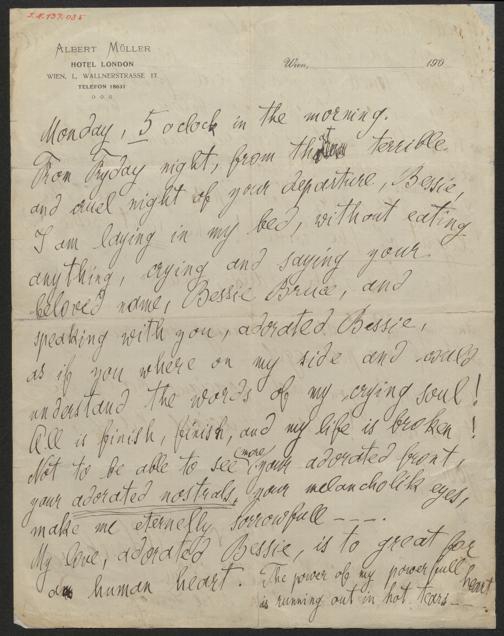 I.N.137.035
ALBERT MÜLLER
HOTEL LONDON
WIEN, I., WALLNERSTRASSE 17.
TELEFON 18631
Wien, 190
Monday, 5 oclock in the morning.
From Fryday night, from that terrible
and cruel night of your departure, Bessie,
I am laying in my bed, without eating
anything, crying and saying your
beloved name, Bessie Bruce, and
speaking with you, adorated Bessie,
as if you where on my side and would
understand the words of my crying soul!
All is finish, finish, and my life is broken!
Not to be able to see more your adorated front,
your adorated nostrals, your melancholik eyes,
make me eternelly sorrowfull ---.
My love, adorated Bessie, is to great for
a human heart. The power of my powerfull heart
is running out in hot tears --